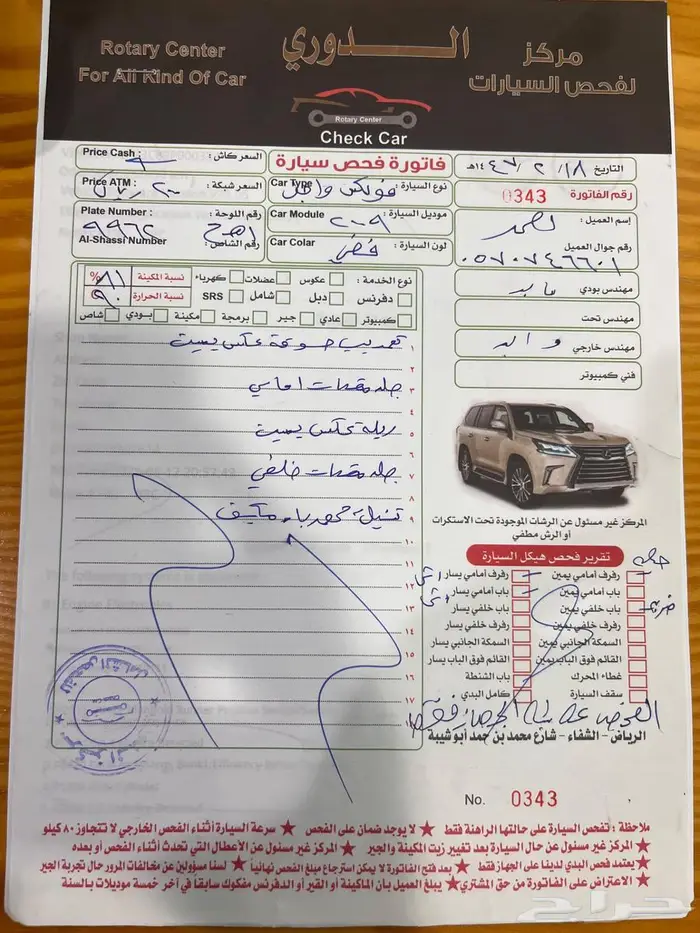 Rotary Center
For All Kind Of Car
الدوري
مركز
لفحص السيارات
Rotary Center
Check Car
Price Cash :
السعر كاش :
فاتورة فحص سيارة
التاريخ ١٨ / ٢ / ١٤٤٧هـ
Price ATM :
السعر شبكة :
Car Type
نوع السيارة :
فولكس واجن
رقم الفاتورة 0343
Plate Number :
رقم اللوحة :
٩٩٦٢
Car Module
موديل السيارة :
٢٠٠٩
إسم العميل :
Al-Shassi Number
رقم الشاص :
Car Colar
لون السيارة :
فضي
رقم جوال العميل
٠٥٧٠٧٤٦٦٠١
نوع الخدمة :
عكوس
عضلات
كهرباء
نسبة المكينة
٨١ %
دفرنس
دبل
شامل
SRS
نسبة الحرارة
٩٠
كمبيوتر
عادي
جير
برمجة
مكينة
بودي
شاص
مهندس بودي
مهندس تحت
مهندس خارجي
فني كمبيوتر
١ تهريب
٢
٣ جلد مقصات امامي
٤
٥ ربلة عكس يمين
٦
٧ جلد مقصات خلفي
٨
٩
١٠
١١
١٢
١٣
١٤
١٥
١٦
١٧
المركز غير مسئول عن الرشات الموجودة تحت الاستكرات
أو الرش مطفي
تقرير فحص هيكل السيارة
رفرف أمامي يمين
رفرف أمامي يسار
باب أمامي يمين
باب أمامي يسار
باب خلفي يمين
باب خلفي يسار
رفرف خلفي يمين
رفرف خلفي يسار
السمكة الجانبي يمين
السمكة الجانبي يسار
القائم فوق الباب يمين
القائم فوق الباب يسار
غطاء المحرك
باب الشنطة
سقف السيارة
كامل البدي
الفحص على الجهاز فقط
الرياض - الشفاء - شارع محمد بن حمد أبو شيبة
No. 0343
ملاحظة : تفحص السيارة على حالتها الراهنة فقط ★ لا يوجد ضمان على الفحص ★ سرعة السيارة أثناء الفحص الخارجي لا تتجاوز ٨٠ كيلو
★ المركز غير مسئول عن حال السيارة بعد تغيير زيت المكينة والجير ★ المركز غير مسئول عن الأعطال التي تحدث أثناء الفحص أو بعده
★ يعتمد فحص البدي لدينا على الجهاز فقط ★ بعد فتح الفاتورة لا يمكن استرجاع مبلغ الفحص نهائياً ★ لسنا مسؤولين عن مخالفات المرور حال تجربة الجير
★ الاعتراض على الفاتورة من حق المشتري ★ يبلغ العميل بأن الماكينة أو القير أو الدفرنس مفكوك سابقاً في آخر خمسة موديلات بالسنة
حراج